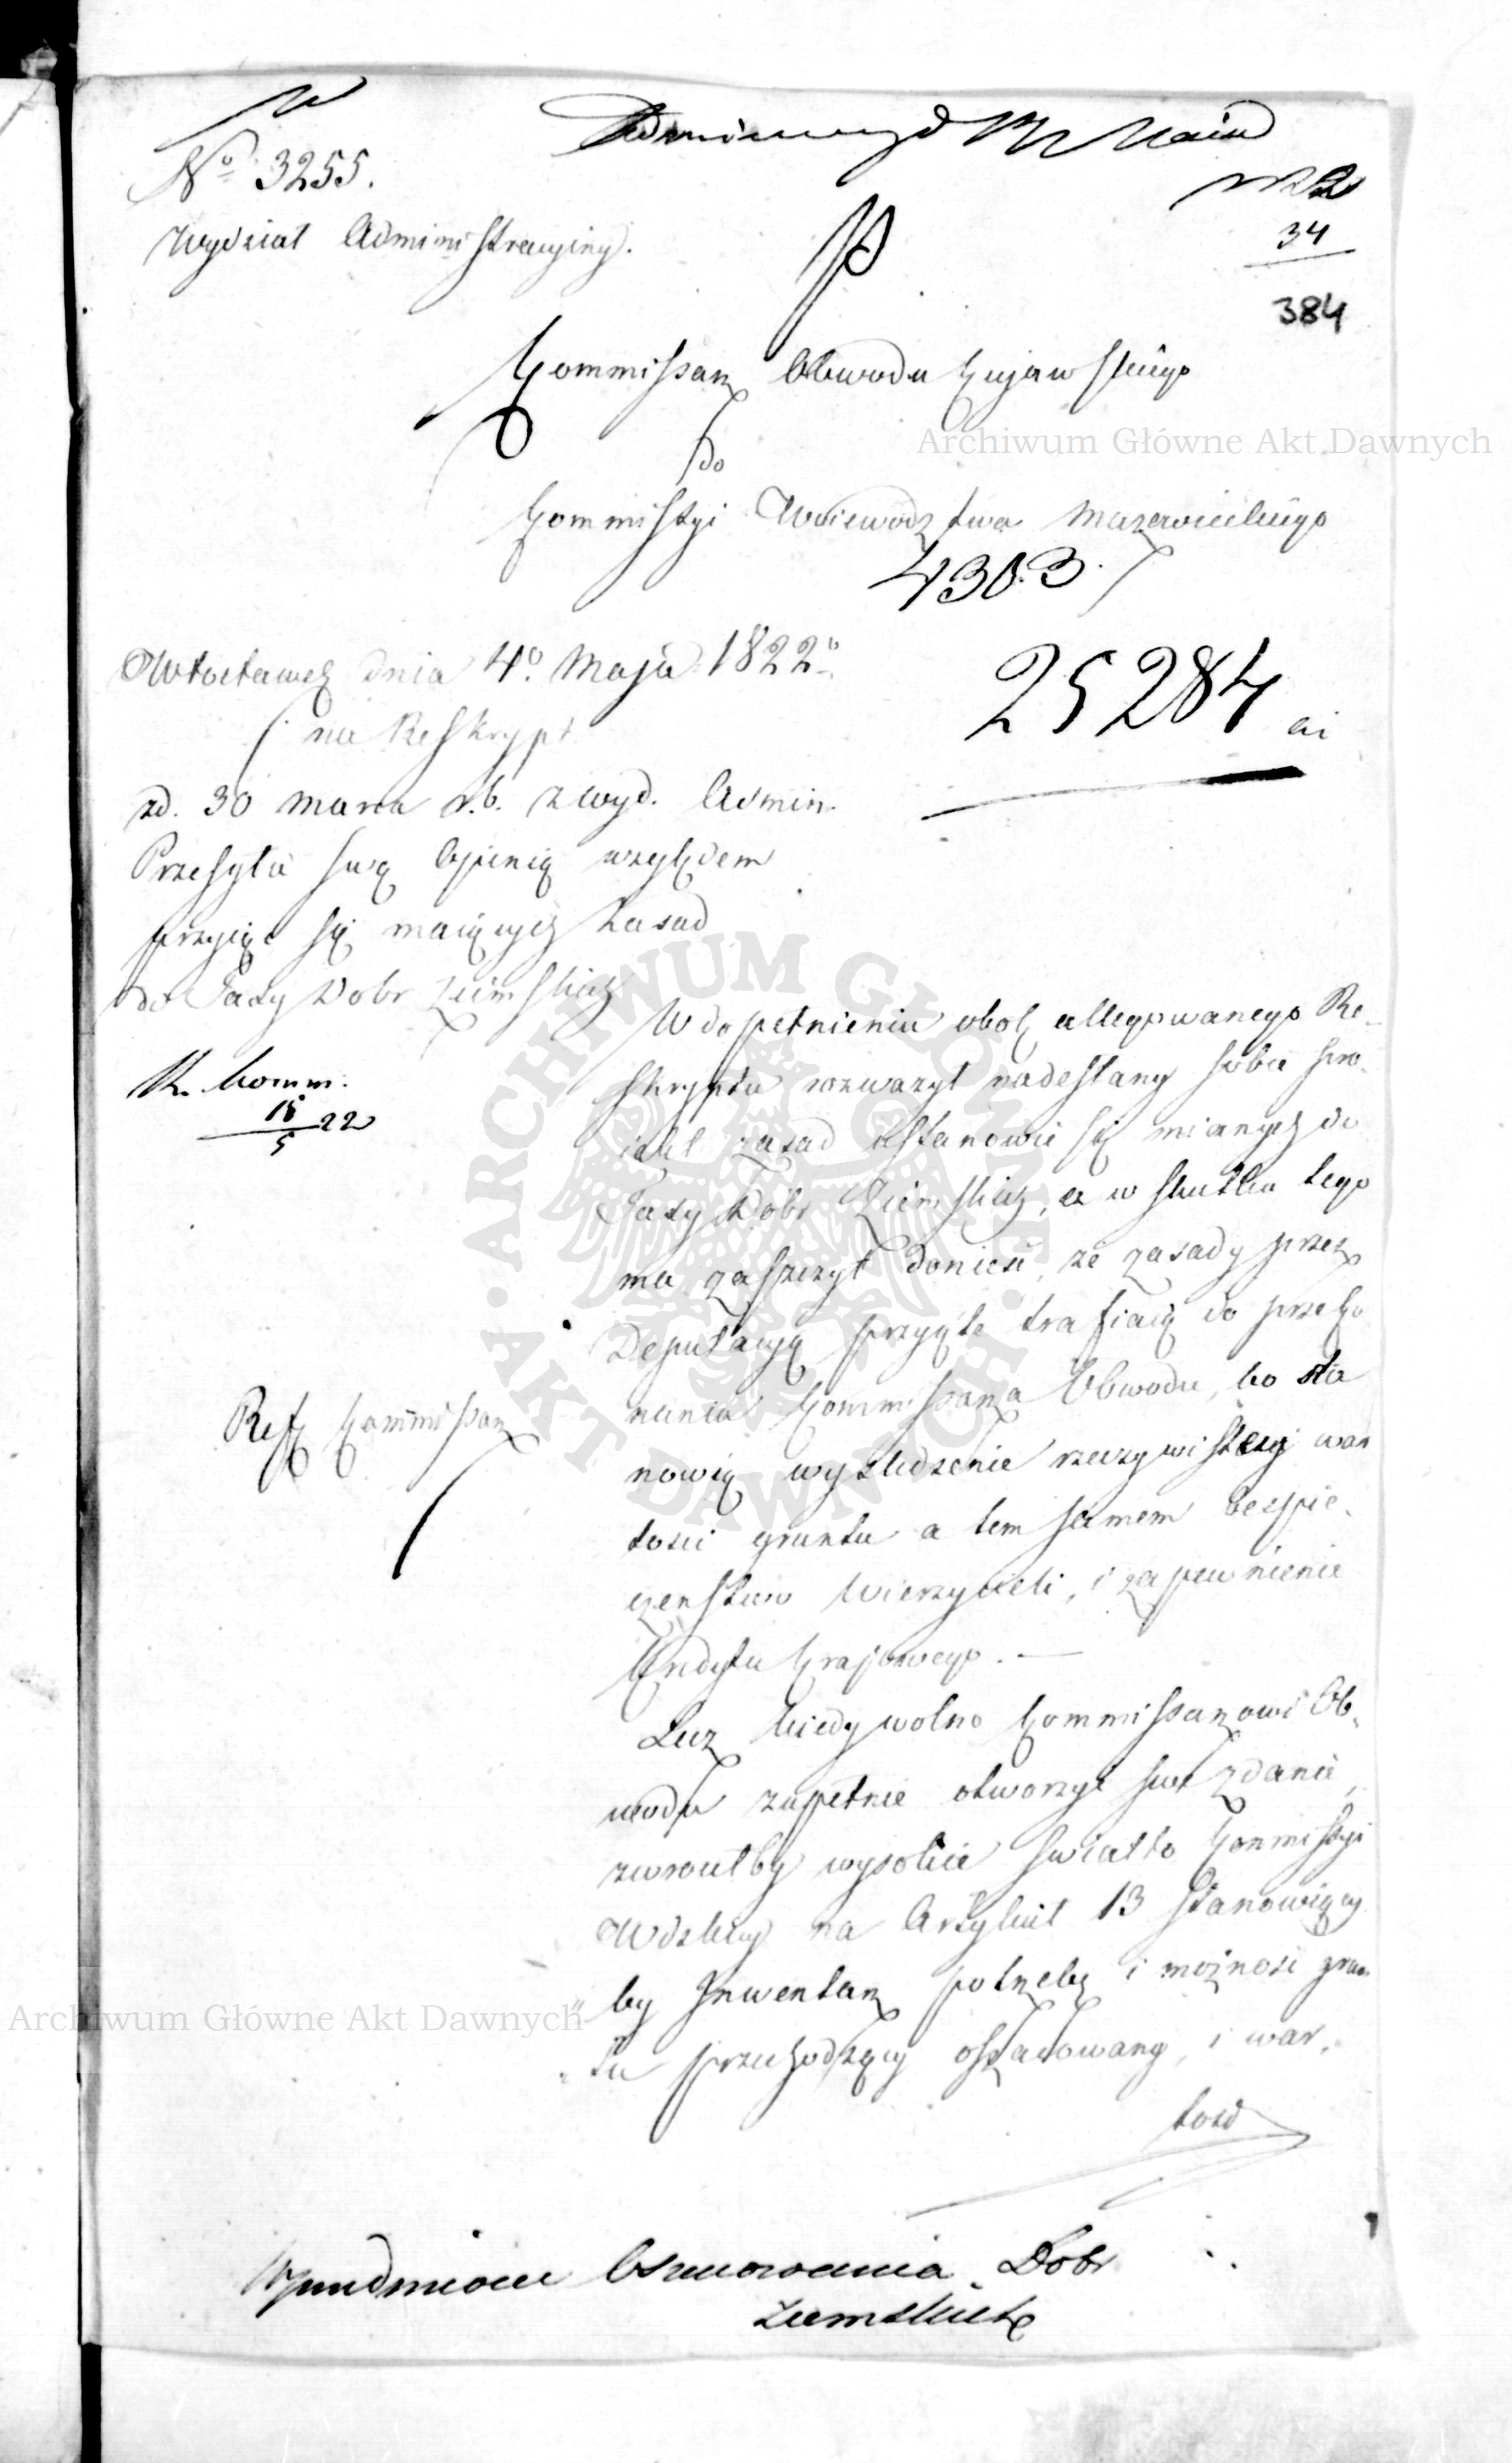 No 3255.
Wydział Administracyiny.
34
384
Kommissarz Obwodu Kujawskiego
do
Kommissyi Woiewodztwa Mazowieckiego
4303.
25284
Włocławek dnia 4o Maja 1822o
na Reskrypt
zd. 30 Marca r.b. z Wyd. Admin.
Przesyła swą Opinią względem
przyiąć się maiących Zasad
do Taxy Dobr Ziemskich
K. Komm.
15/5 22
W dopełnieniu obok allegowanego Re-
skryptu rozważył nadesłany sobie pro-
iekt zasad ustanowić się mianych do
Taxy Dobr Ziemskich, a w skutku tego
ma zaszczyt donieść, że zasady przez
Deputacyą przyięte trafiaią do przeko
nania Kommissarza Obwodu, bo sta
nowią wyśledzenie rzeczywistey war
tości gruntu a tem samem bezpie-
czeństwo Wierzycieli, i zapewnienie
Kredytu Krajowego. —
Ref Kommissarz
Lecz kiedy wolno Kommissarzowi Ob-
wodu zupełnie otworzyć swe zdanie,
zwrociłby wysokie światło Kommissyi
Wdzkiey na Artykuł 13 stanowiący
"by Inwentarz potrzebę i możność grun
"tu przechodzący oszacowany, i war-
tość
Archiwum Główne Akt Dawnych
Archiwum Główne Akt Dawnych
ARCHIWUM GŁÓWNE AKT DAWNYCH
W przedmiocie Oszacowania Dobr
Ziemskich